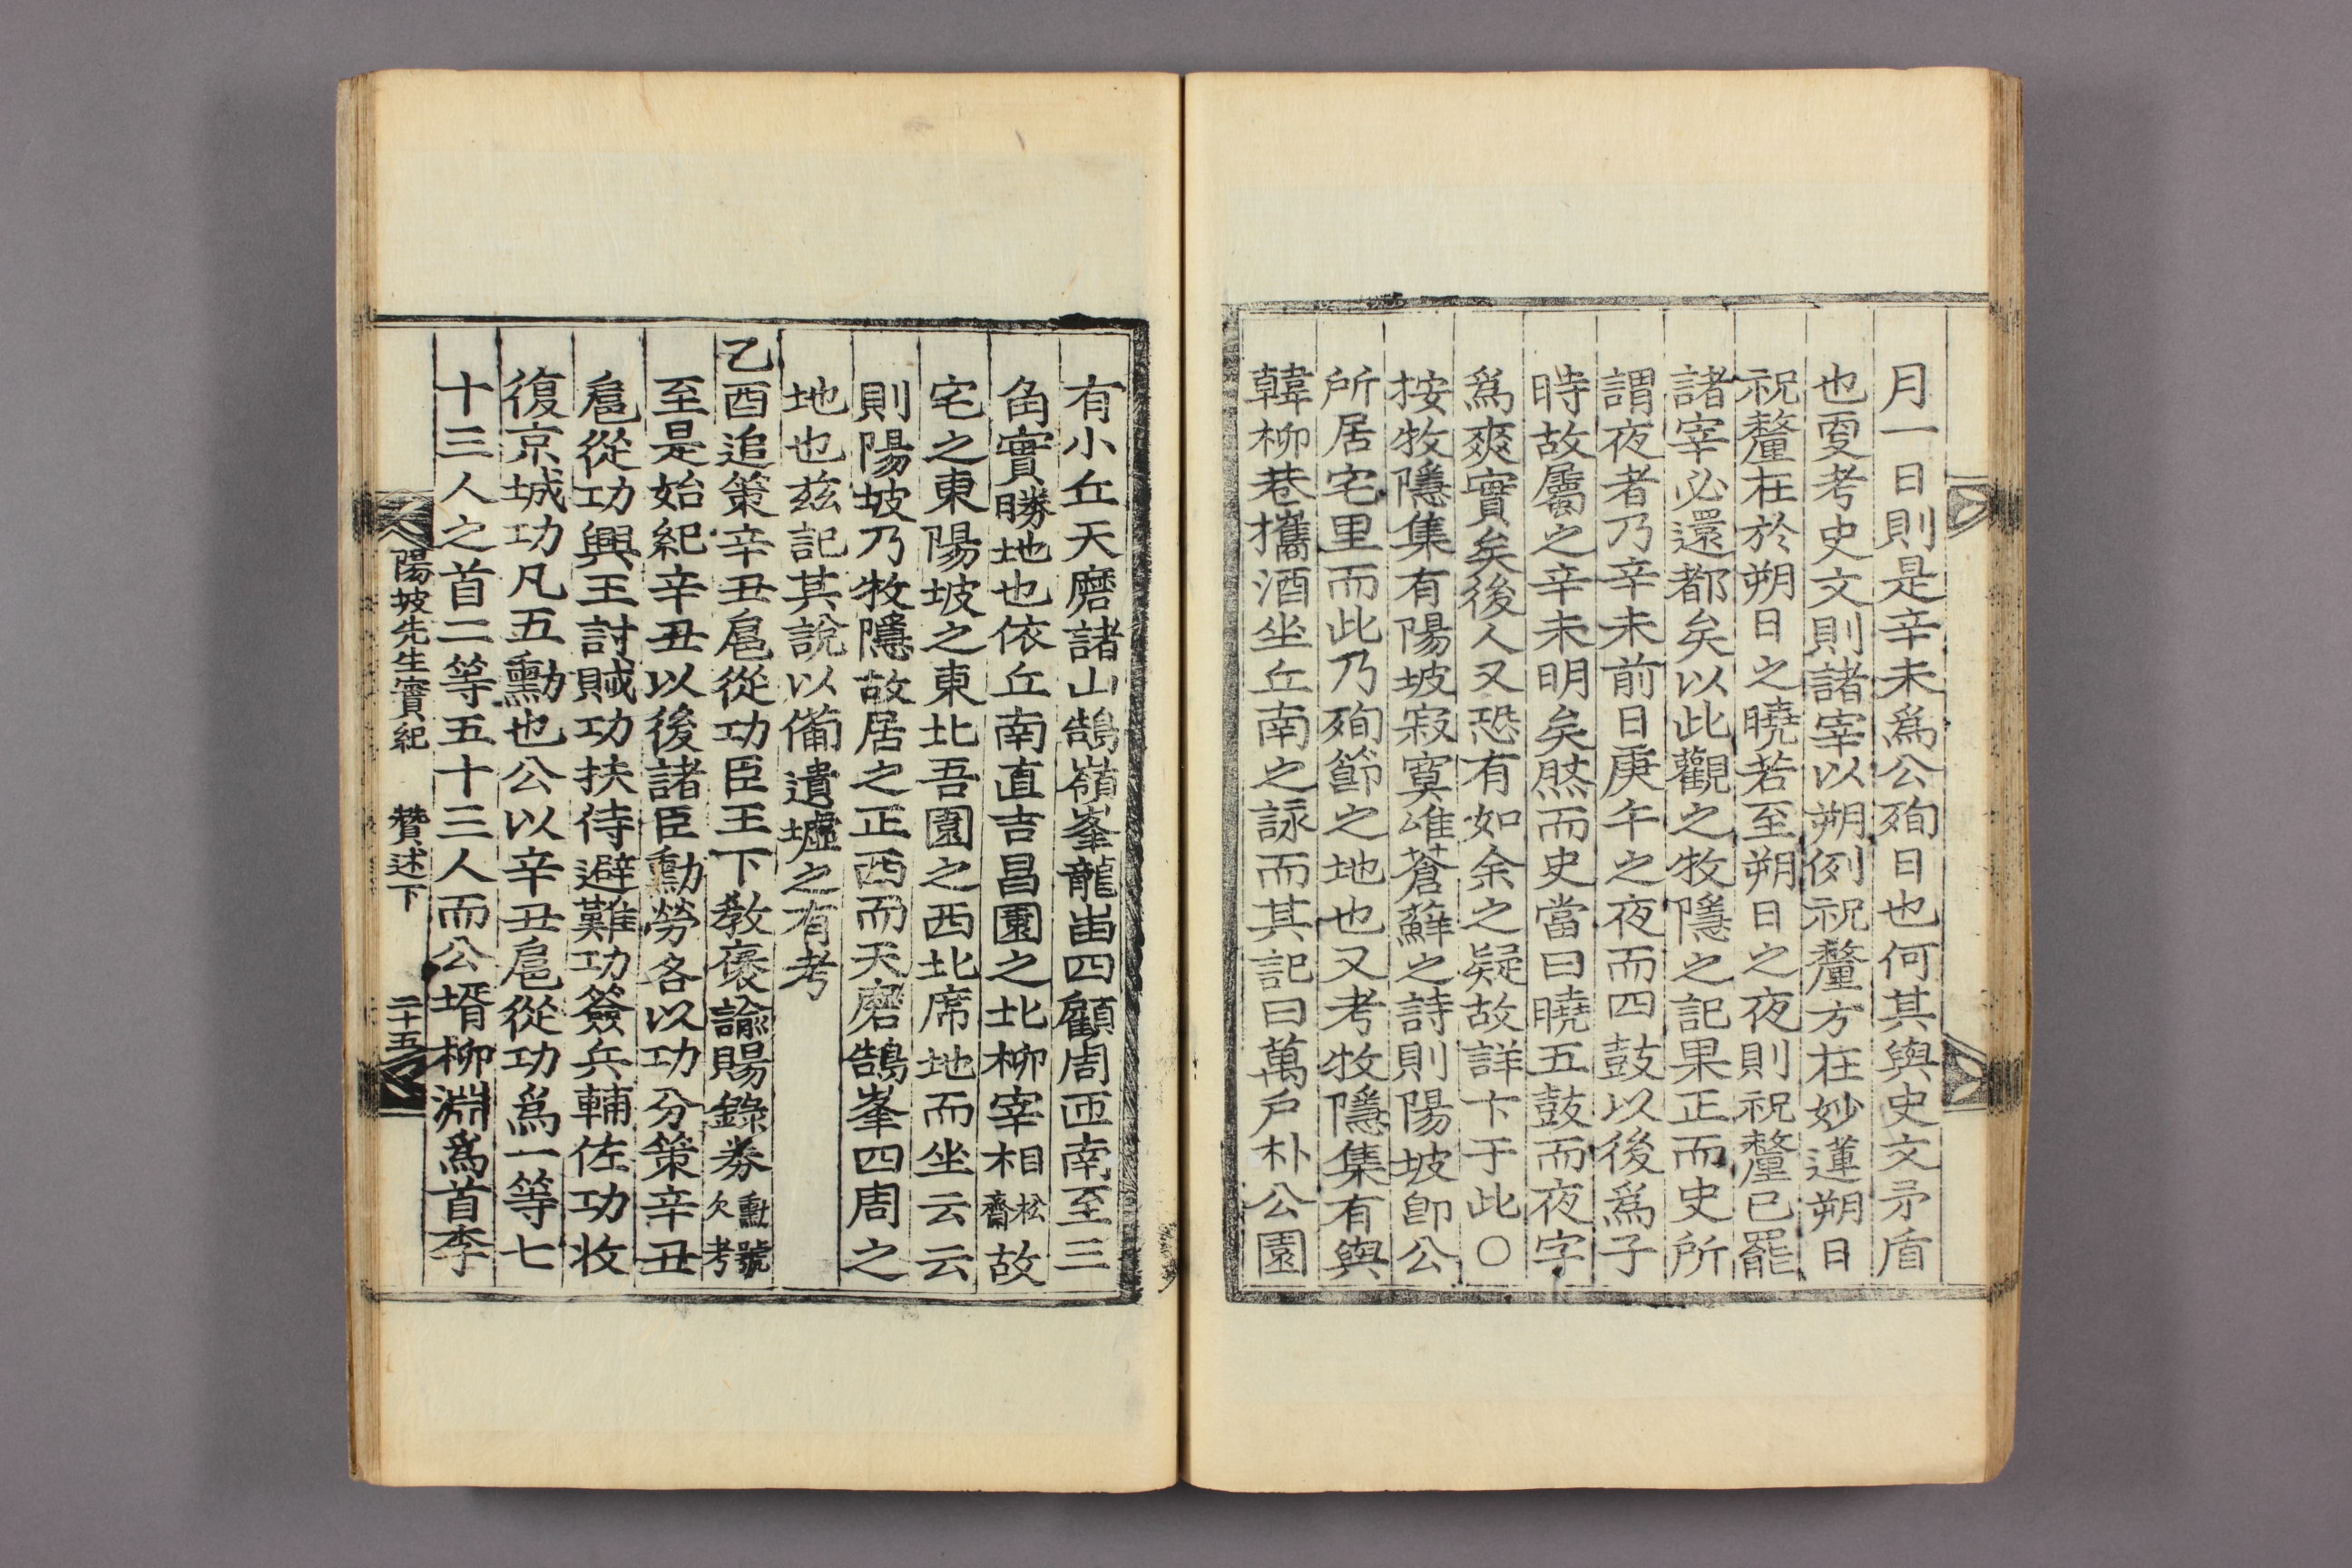 月一日則是辛未爲公殉日也何其與史文矛盾
也更考史文則諸宰以朔例祝釐方在妙蓮朔日
祝釐在於朔日之曉若至朔日之夜則祝釐已罷
諸宰必還都矣以此觀之牧隱之記果正而史所
謂夜者乃辛未前日庚午之夜而四鼓以後爲子
時故屬之辛未明矣然而史當曰曉五鼓而夜字
爲爽實矣後人又恐有如余之疑故詳卞于此○
按牧隱集有陽坡寂寞唯蒼蘚之詩則陽坡卽公
所居宅里而此乃殉節之地也又考牧隱集有與
韓柳巷攜酒坐丘南之詠而其記曰萬戶朴公園
有小丘天磨諸山鵠嶺峯龍岫四顧周匝南至三
角實勝地也依丘南直吉昌園之北柳宰相松齋故
宅之東陽坡之東北吾園之西北席地而坐云云
則陽坡乃牧隱故居之正西而天磨鵠峯四周之
地也玆記其說以備遺墟之有考
乙酉追策辛丑扈從功臣王下敎褒諭賜錄券勳號欠考
至是始紀辛丑以後諸臣勳勞各以功分策辛丑
扈從功興王討賊功扶侍避難功簽兵輔佐功收
復京城功凡五勳也公以辛丑扈從功爲一等七
十三人之首二等五十三人而公壻柳淵爲首李
陽坡先生實紀 贊述下 二十五